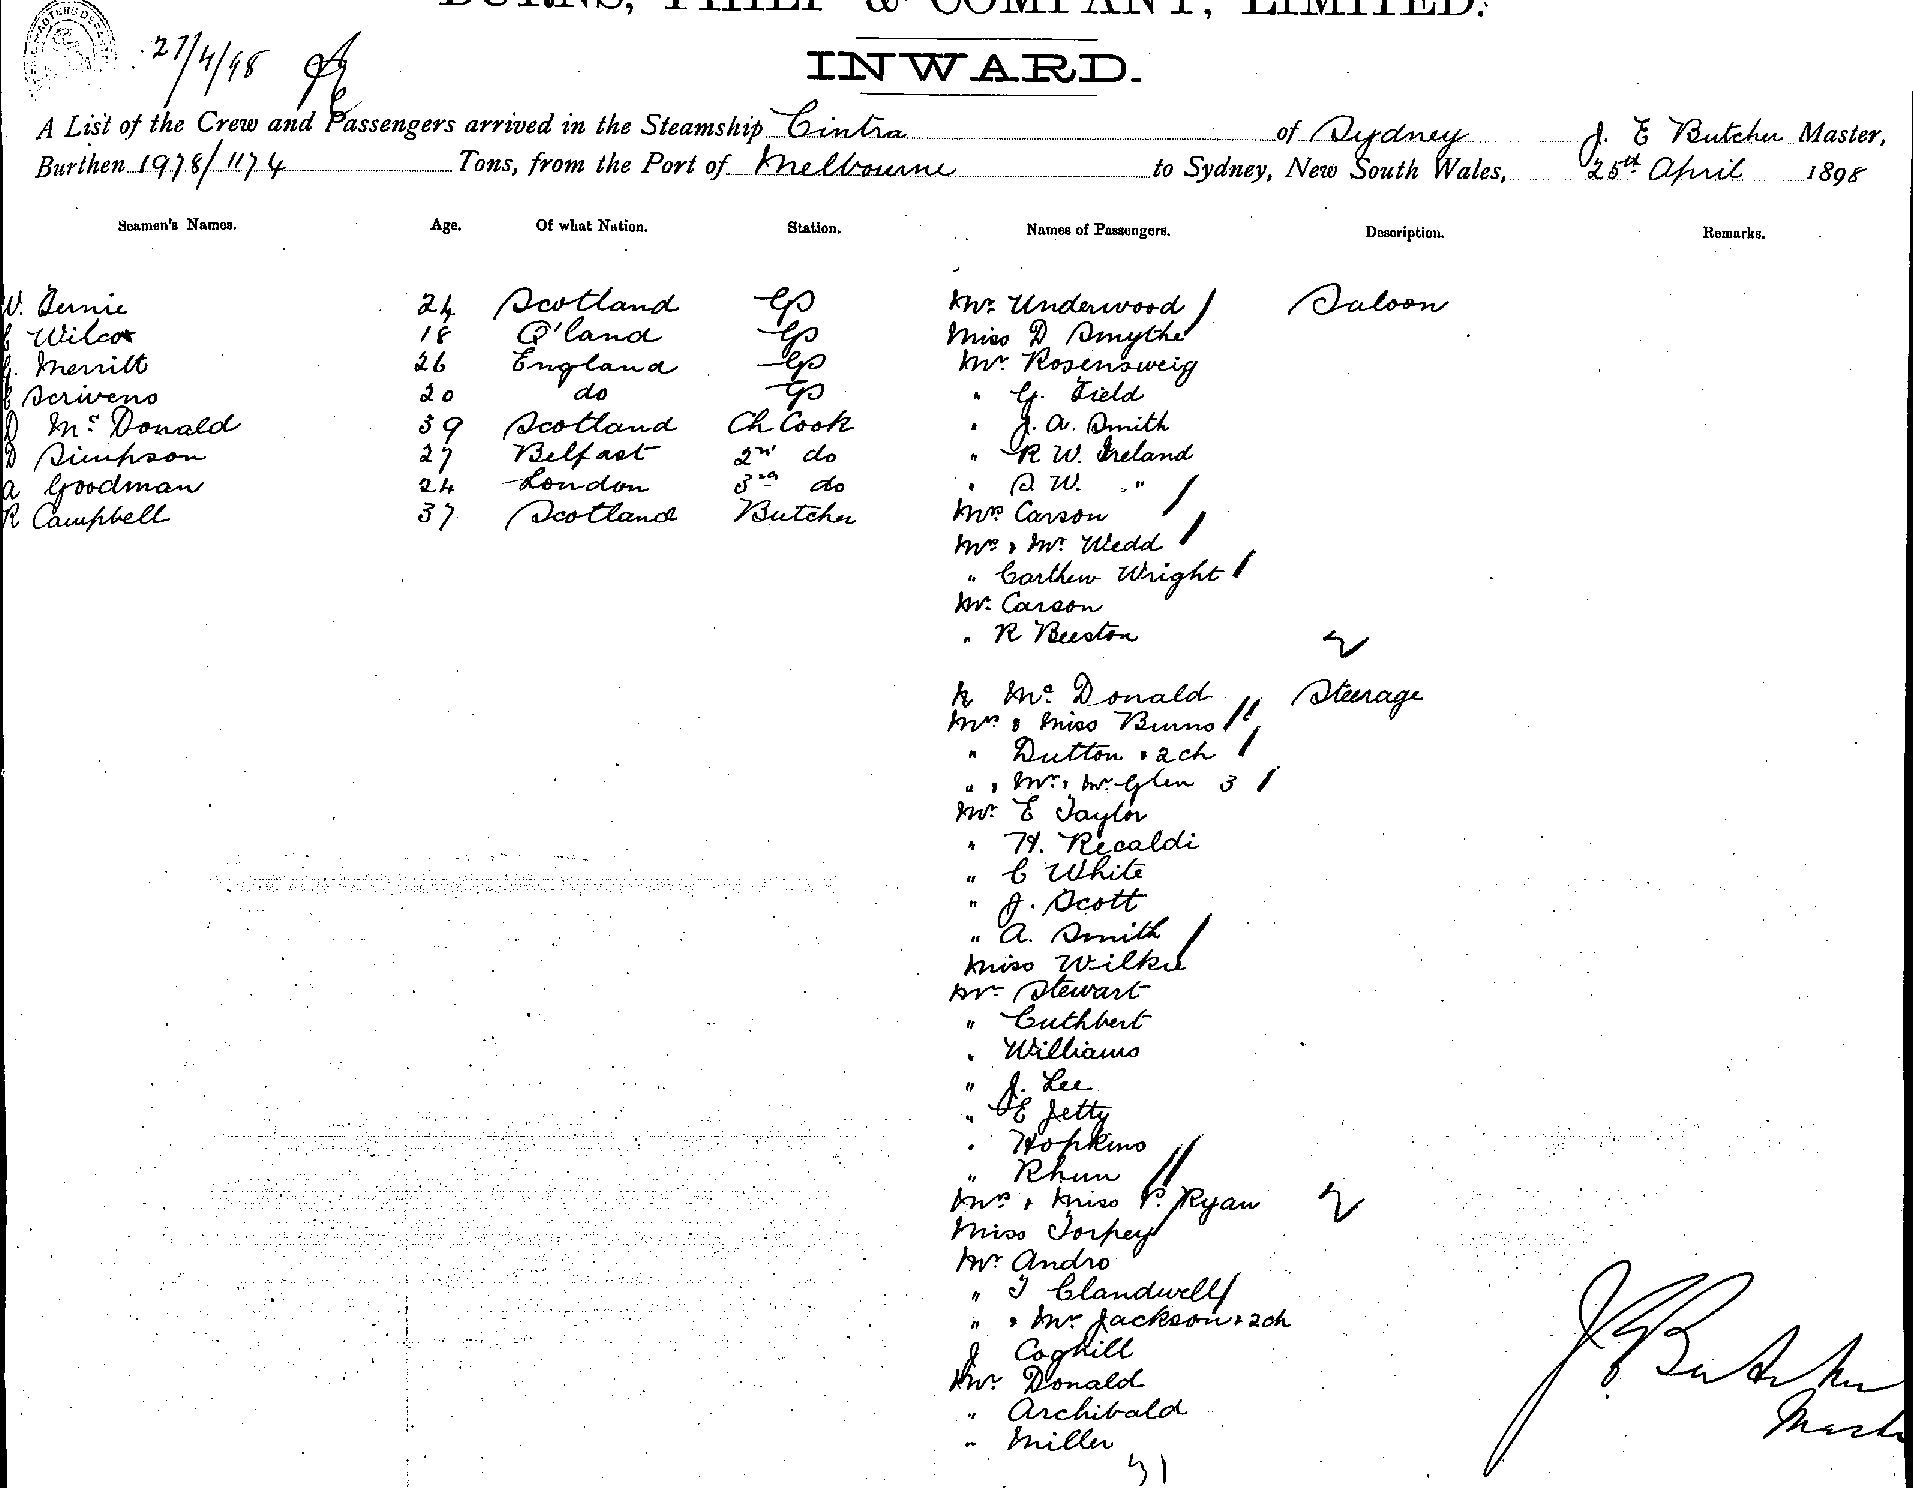 BURNS, PHILP & COMPANY, LIMITED.
27/4/98
INWARD.
A List of the Crew and Passengers arrived in the Steamship Cintra of Sydney J. E Butcher Master,
Burthen 1978/1174 Tons, from the Port of Melbourne to Sydney, New South Wales, 25th April 1898
Seamen's Names. Age. Of what Nation. Station. Names of Passengers. Description. Remarks.
W. Bernie 24 Scotland GS Mr. Underwood Saloon
Wilcox 18 Q'land GS Miss D Smythe
Merritt 26 England GS Mr. Rosensweig
Scrivens 20 do GS " G. Field
D McDonald 39 Scotland Ch Cook " J. A. Smith
Simpson 27 Belfast 2nd do " R W. Ireland
A Goodman 24 London 3rd do " S. W. "
R Campbell 37 Scotland Butcher Mrs Carson
Mrs & Mr. Wedd
" Carthew Wright
Mr. Carson
" R Beeston
K McDonald Steerage
Mrs & Miss Burns
" Dutton & 2 ch
" & Mr. & Mr. Glen 3
Mr. E Taylor
" H. Recaldi
" C White
" J. Scott
" A. Smith
Miss Wilkie
Mr. Stewart
" Cuthbert
" Williams
" J. Lee
" E Jetty
" Hopkins
" Rhun
Mrs & Miss P. Ryan
Miss Torpey
Mr. Andro
" T Clandwell
" & Mr. Jackson & 2 ch
J Coghill
Mr. Donald
" Archibald
" Miller
J E Butcher
Master